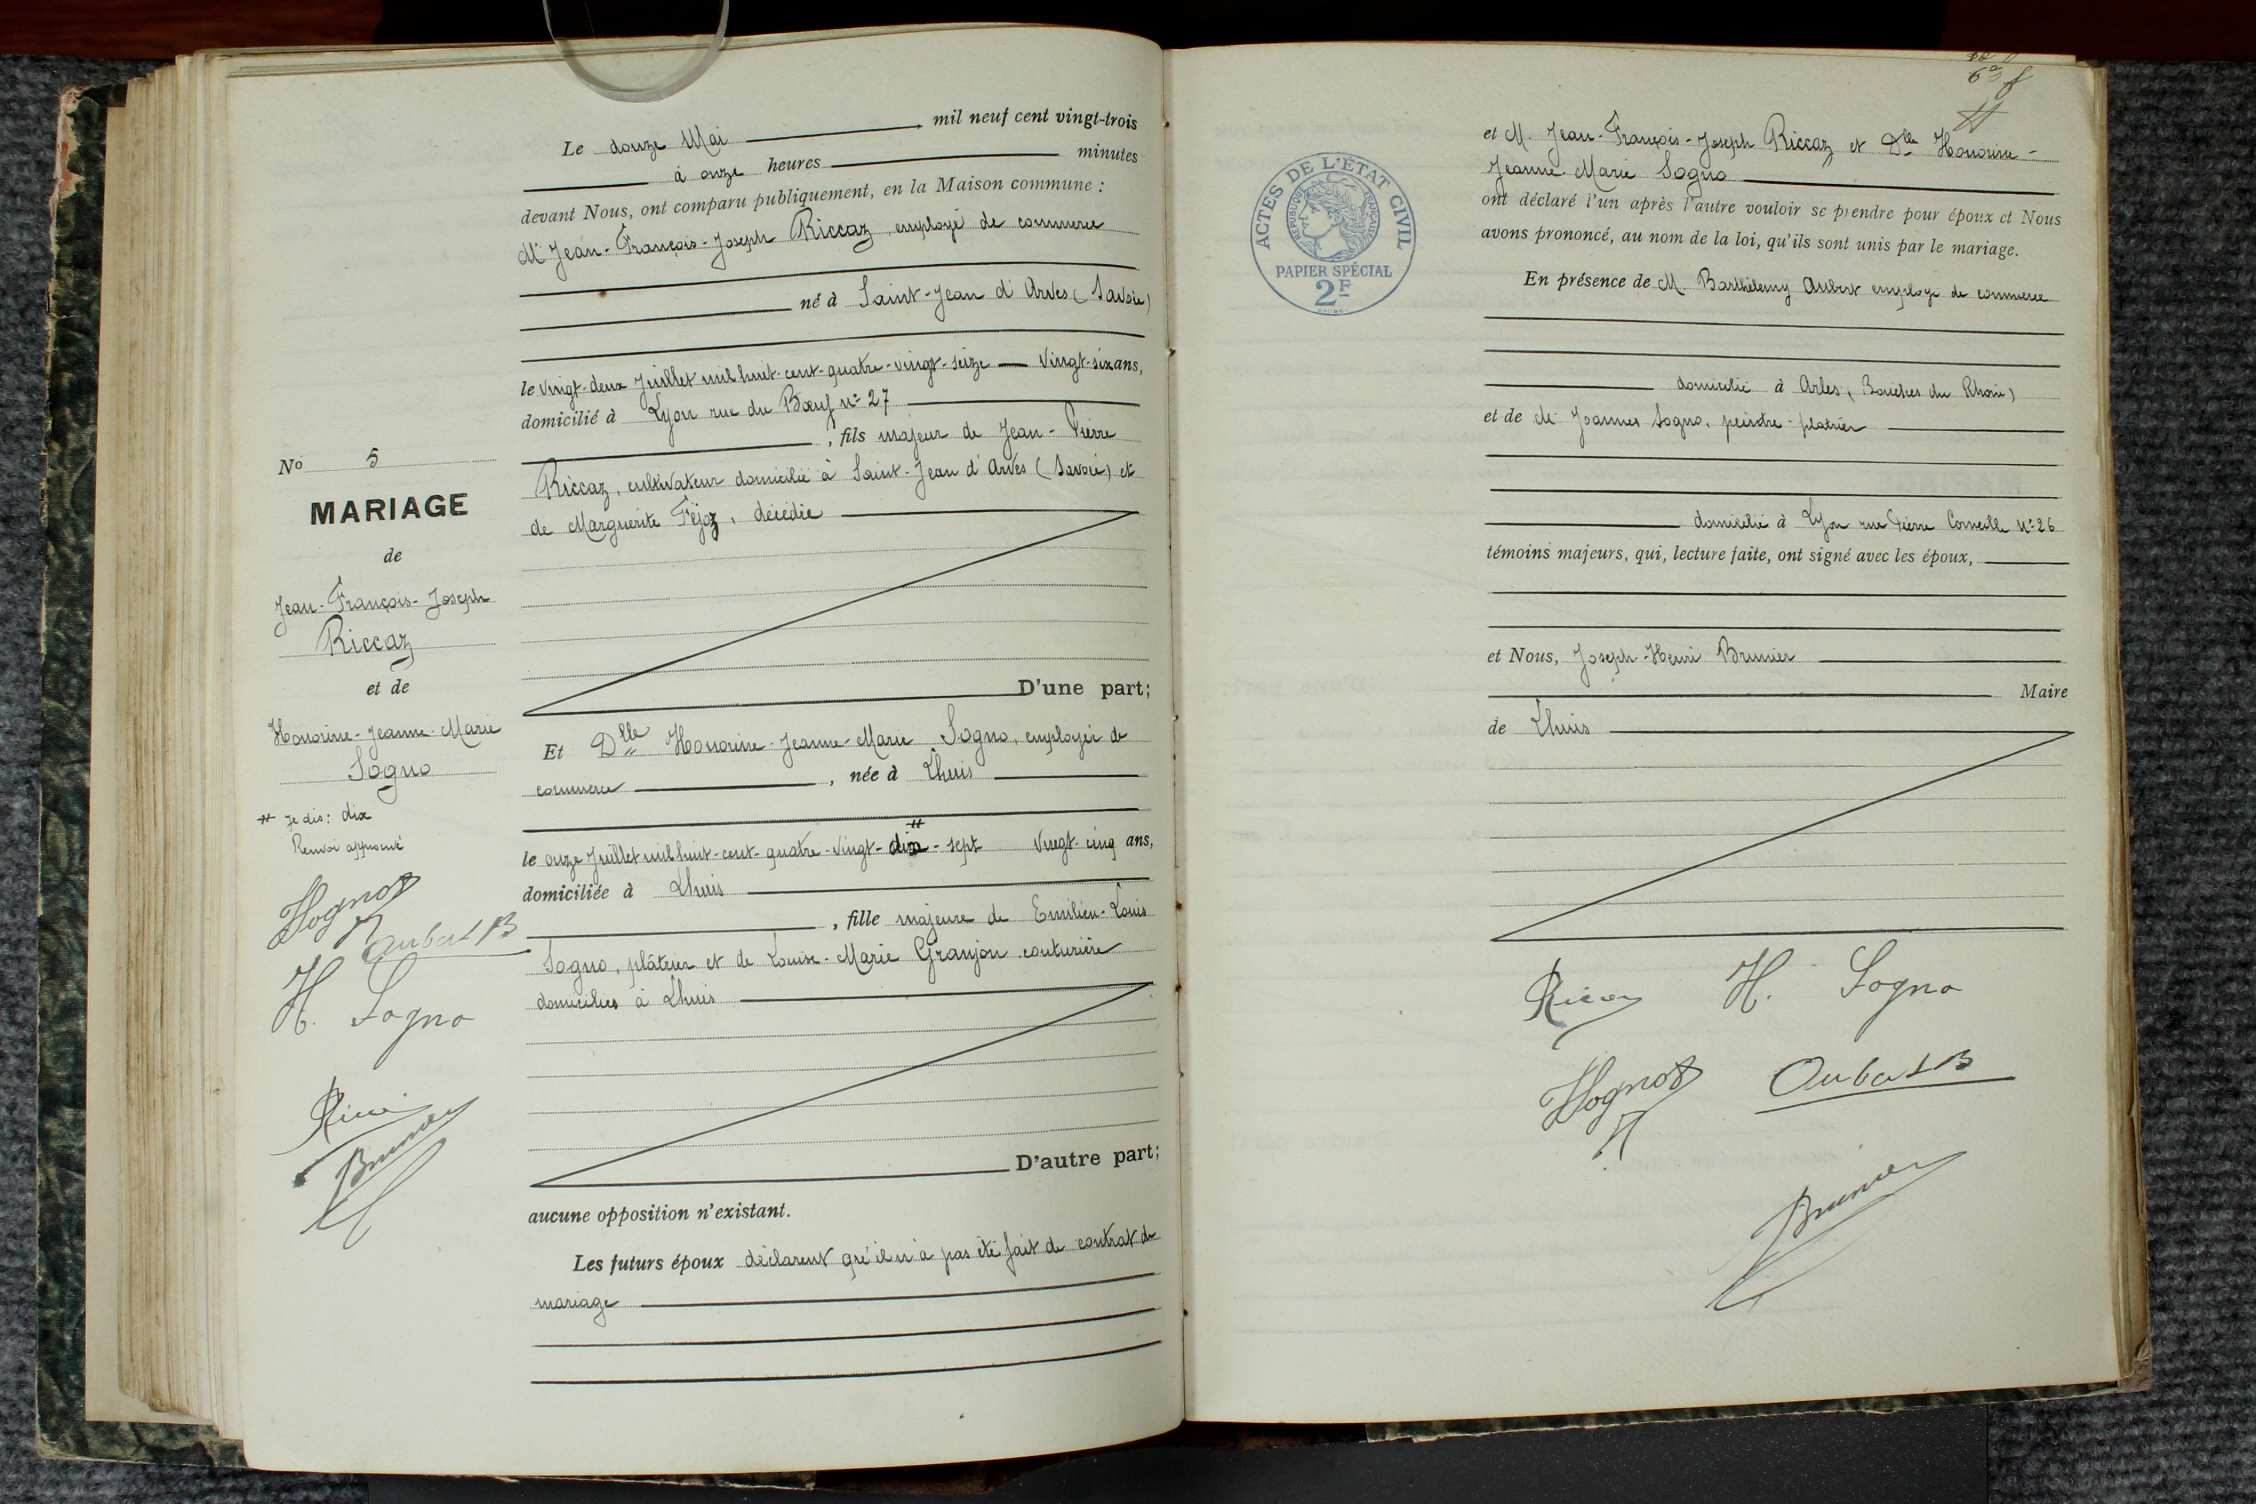 Le douze Mai mil neuf cent vingt-trois
à onze heures minutes
devant Nous, ont comparu publiquement, en la Maison commune :
Mr Jean-François-Joseph Riccaz, employé de commerce
né à Saint-Jean d'Arves (Savoie)
le vingt-deux Juillet mil huit-cent-quatre-vingt-seize — Vingt-six ans,
domicilié à Lyon rue du Bœuf n° 27
, fils majeur de Jean-Pierre
Riccaz, cultivateur domicilié à Saint-Jean d'Arves (Savoie) et
de Marguerite Féjoz, décédée
D'une part;
Et Dlle Honorine-Jeanne-Marie Sogno, employée de
commerce , née à Lhuis
le onze Juillet mil huit-cent-quatre-vingt-dix-sept Vingt-cinq ans,
domiciliée à Lhuis
, fille majeure de Emilien-Louis
Sogno, plâtrier et de Louise-Marie Granjon couturière
domiciliés à Lhuis
D'autre part;
aucune opposition n'existant.
Les futurs époux déclarent qu'il n'a pas été fait de contrat de
mariage
No 5
MARIAGE
de
Jean-François-Joseph
Riccaz
et de
Honorine-Jeanne-Marie
Sogno
# Je dis: dix
Renvoi approuvé
Aubert B
H. Sogno
Brunier
ACTES DE L'ETAT CIVIL
REPUBLIQUE FRANÇAISE
PAPIER SPÉCIAL
2F
et M. Jean-François-Joseph Riccaz et Dlle Honorine-
Jeanne Marie Sogno
ont déclaré l'un après l'autre vouloir se prendre pour époux et Nous
avons prononcé, au nom de la loi, qu'ils sont unis par le mariage.
En présence de M. Barthélemy Aubert employé de commerce
domicilié à Arles, (Bouches du Rhône)
et de M. Joannes Sogno, peintre-platrier
domicilié à Lyon rue Pierre Corneille N° 26
témoins majeurs, qui, lecture faite, ont signé avec les époux,
et Nous, Joseph-Henri Brunier
Maire
de Lhuis
H. Sogno
Aubert B
Brunier